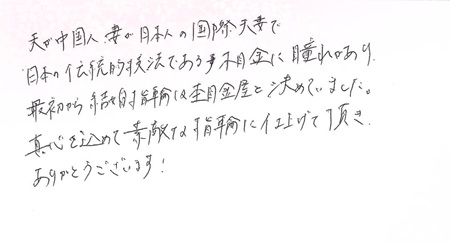 夫が中国人、妻が日本人の国際夫妻で
日本の伝統的技法である杢目金に憧れがあり、
最初から結婚指輪は杢目金屋と決めていました。
真心を込めて素敵な指輪に仕上げて頂き、
ありがとうございます!